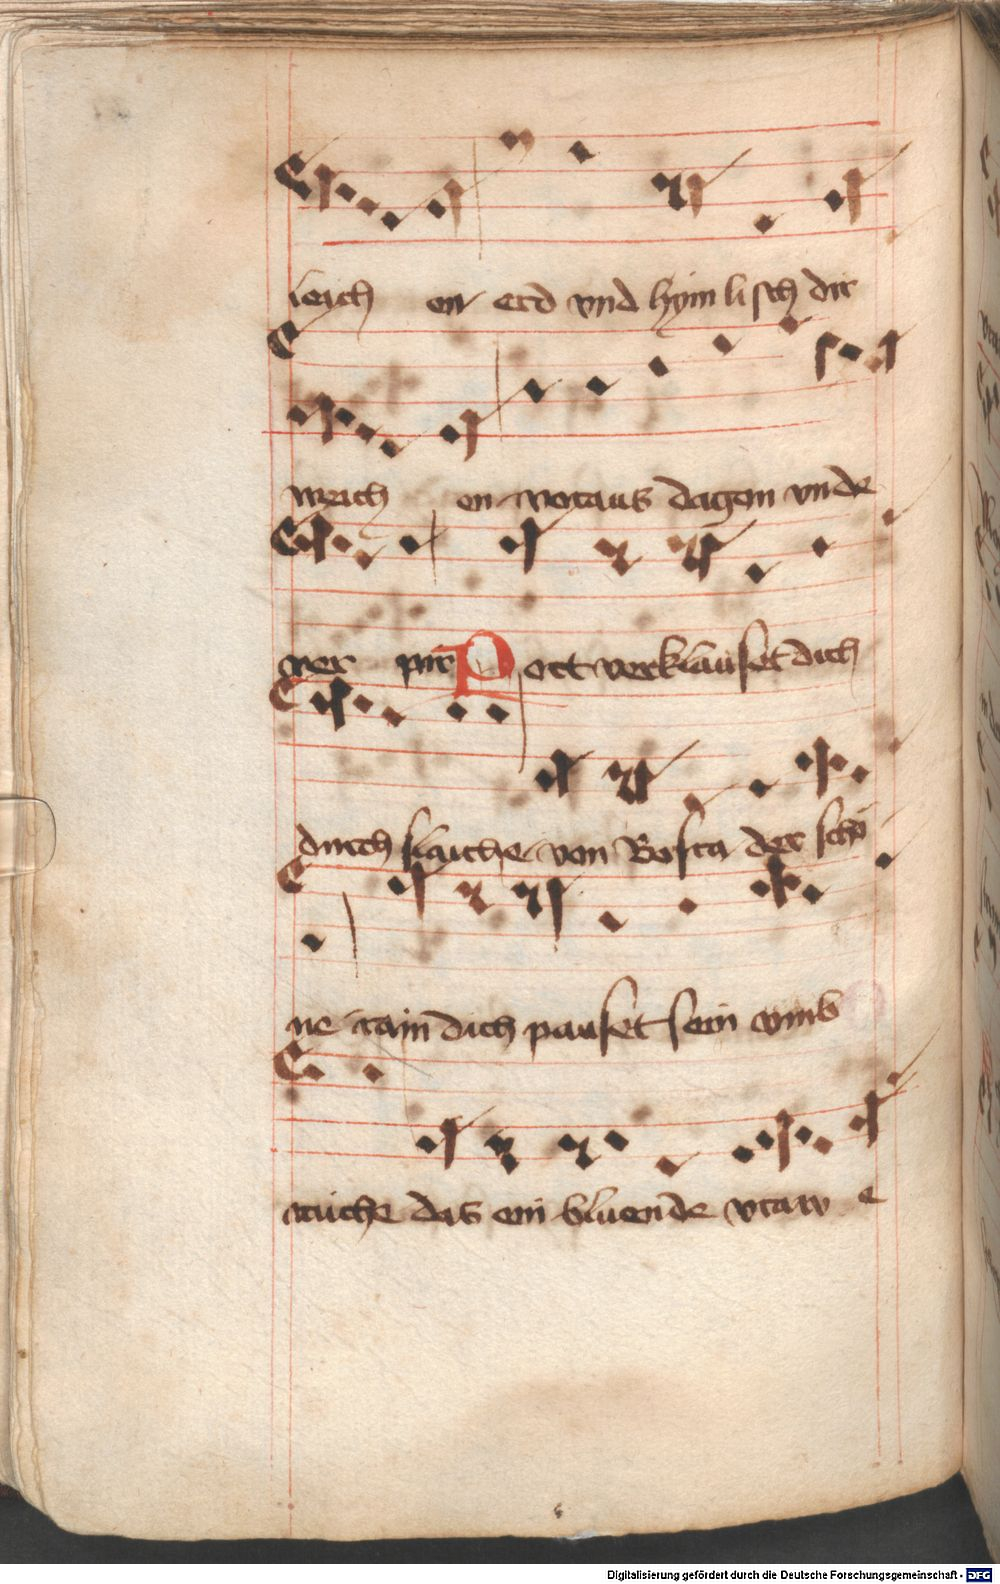 leich en erd vnd hymlisch dir
weich en voraus dagen vnde
ner pir Port verklauset dich
durch slauche von Bosra der scho
ne rain dich pauset sein vmb
rauche das ein bluende vraw e
Digitalisierung gefördert durch die Deutsche Forschungsgemeinschaft - DFG